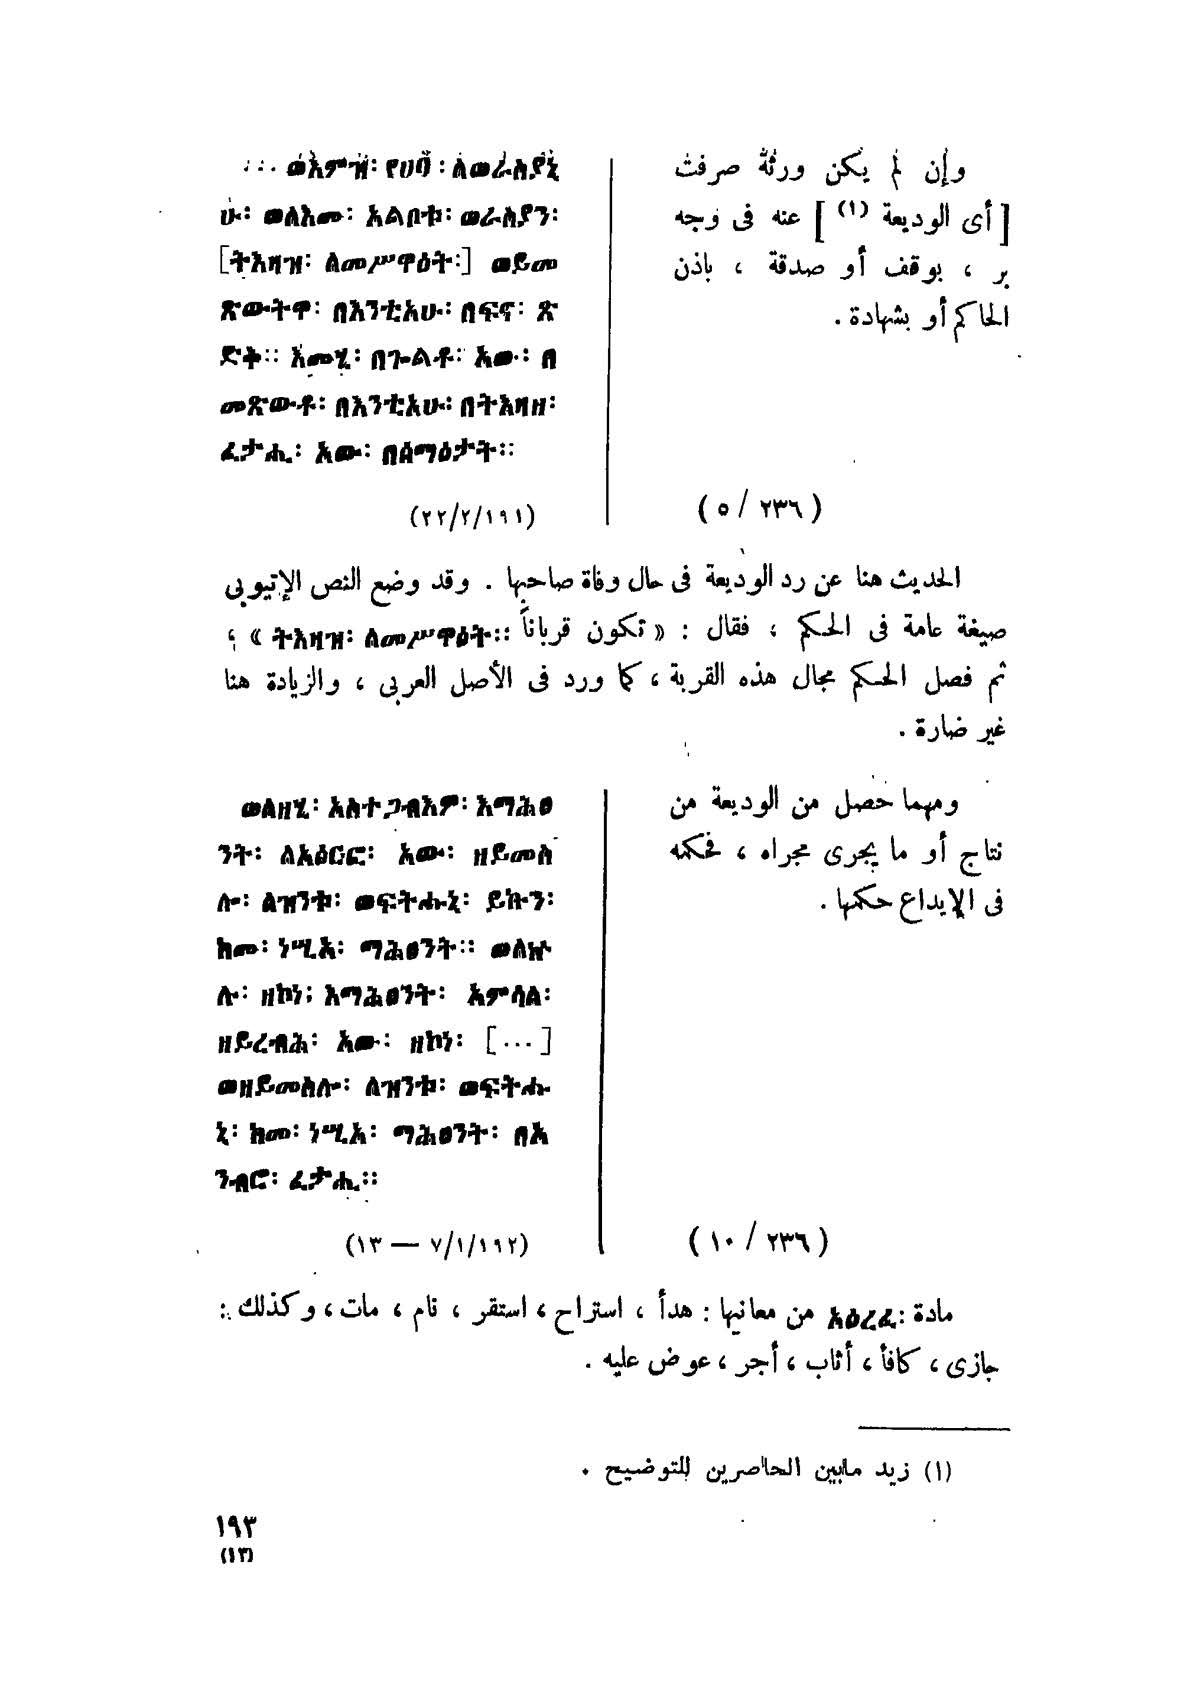 وإن لم يكن ورثة صرفت
[ أى الوديعة (١) ] عنه فى وجه
بر ، بوقف أو صدقة ، باذن
الحاكم أو بشهادة .
( ٢٣٦ / ٥ )
... ወእምዝ፡ የሀቦ፡ ለወራስያኒ
ሁ፡ ወለእመ፡ አልቦቱ፡ ወራስያን፡
[ትእዛዝ፡ ልመሥዋዕት፡] ወይመ
ጽውትዎ፡ በእንቲአሁ፡ በፍኖ፡ ጽ
ድቅ። እመሂ፡ በጕልቶ፡ አው፡ በ
መጽውቶ፡ በእንቲአሁ፡ በትእዛዘ፡
ፈታሒ፡ አው፡ በሰማዕታት።
(٢٢/٢/١٩١)
الحديث هنا عن رد الوديعة فى حال وفاة صاحبها . وقد وضع النص الإتيوبى
صيغة عامة فى الحكم ، فقال : « تكون قرباناً ትእዛዝ፡ ለመሥዋዕት። » ؛
ثم فصل الحكم مجال هذه القربة ، كما ورد فى الأصل العربى ، والزيادة هنا
غير ضارة .
ومهما حصل من الوديعة من
نتاج أو ما يجرى مجراه ، فحكمه
فى الإيداع حكمها .
( ٢٣٦ / ١٠ )
ወልዘሂ፡ አስተጋብእም፡ እማሕፀ
ንት፡ ልአዕርፎ፡ አው፡ ዘይመስ
ሎ፡ ልዝንቱ፡ ወፍትሑኒ፡ ይኩን፡
ከመ፡ ነሢአ፡ ማሕፀንት። ወለኵ
ሉ፡ ዘኮነ፡ እማሕፀንት፡ አምሳል፡
ዘይረብሕ፡ አው፡ ዘኮነ፡ [...]
ወዘይመስሎ፡ ልዝንቱ፡ ወፍትሑ
ኒ፡ ከመ፡ ነሢአ፡ ማሕፀንት፡ በአ
ንብሮ፡ ፈታሒ።
(١٩٢/١/٧ — ١٣)
مادة : አዕረፈ من معانيها : هدأ ، استراح ، استقر ، نام ، مات ، وكذلك :
جازى ، كافأ ، أثاب ، أجر ، عوض عليه .
(١) زيد مابين الحاصرين للتوضيح .
١٩٣
(١٣)